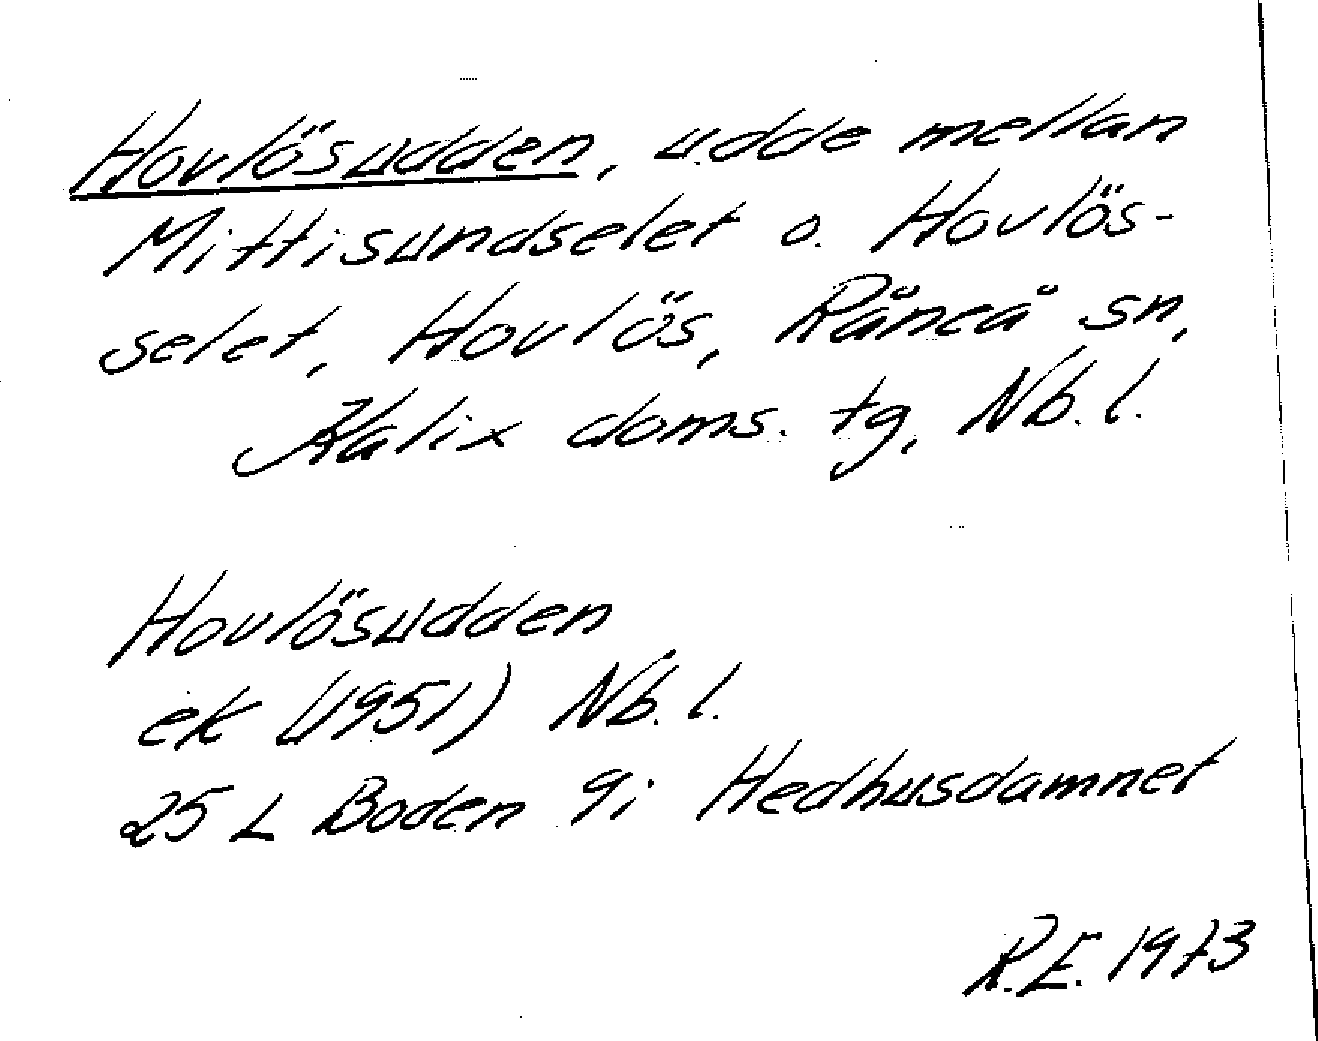 Hovlösudden, udde mellan
Mittisundselet o. Hovlös-
selet, Hovlös, Råneå sn,
Kalix doms. tg, Nb. l.
Hovlösudden
ek (1951) Nb. l.
25 L Boden 9i Hedhusdamnet
R.E. 1973